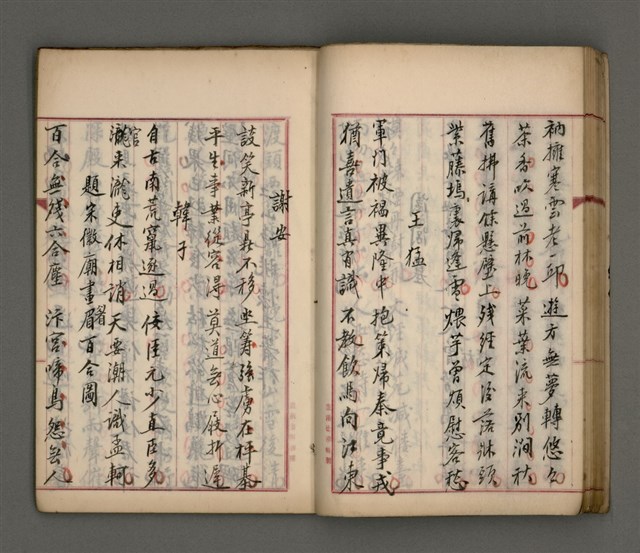 衲擁寒雲老一邱　遊方無夢轉悠々
茶香吹過前林晚　菜葉流來別澗秋
舊拂講餘懸壁上　殘經定後落牀頭
紫藤塢裏歸逢雪　煨芋曾煩慰客愁
王猛
軍門被褐異隆中　抱策歸秦竟事戎
猶喜遺言真有識　不教飲馬向江東
謝安
談笑新亭鼎不移　坐籌強虜在枰棊
平生事業從容得　莫道無心屐折遍
韓子
自古南荒竄逐過　佞臣元少直臣多
官瀧來瀧更休相誚　天要潮人識孟軻
題宋徽廟畫眉百合圖
百合無殘六合塵　汴宮啼鳥怨無人